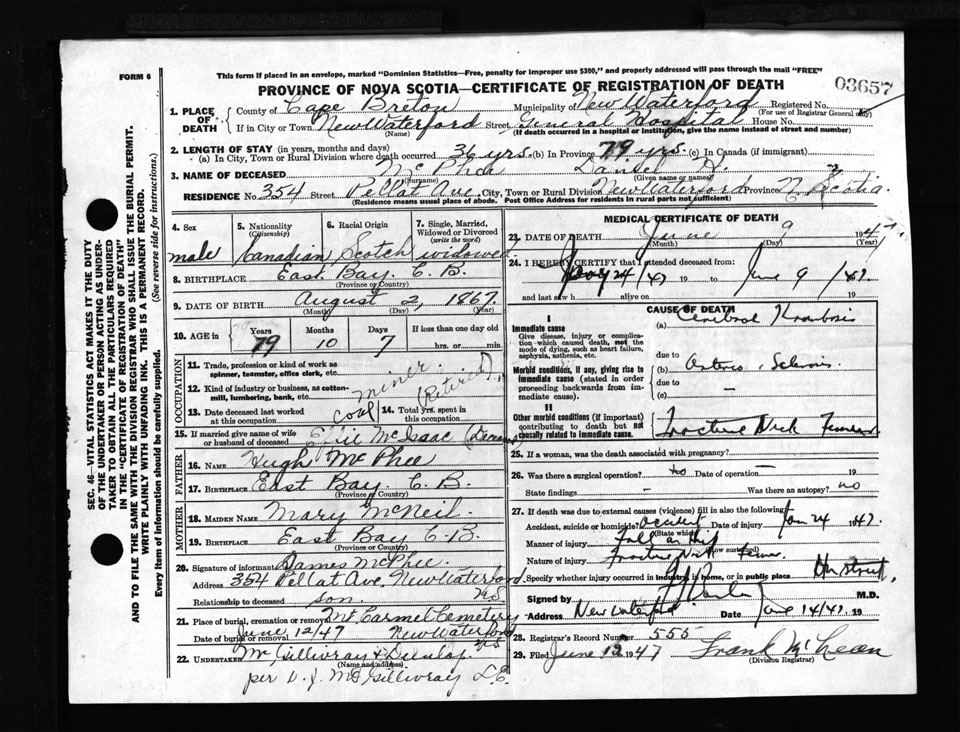 FORM 6
This form if placed in an envelope, marked "Dominion Statistics—Free, penalty for improper use $300," and properly addressed will pass through the mail "FREE"
PROVINCE OF NOVA SCOTIA—CERTIFICATE OF REGISTRATION OF DEATH
03657
1. PLACE OF DEATH
County of Cape Breton Municipality of New Waterford Registered No.
(For use of Registrar General only)
If in City or Town New Waterford Street General Hospital House No.
(Name) (If death occurred in a hospital or institution, give the name instead of street and number)
2. LENGTH OF STAY (in years, months and days)
(a) In City, Town or Rural Division where death occurred 36 yrs. (b) In Province 79 yrs. (c) In Canada (if immigrant)
3. NAME OF DECEASED McPhee Daniel H.
(Surname) (Given name or names)
RESIDENCE No. 354 Street Pellat Ave. City, Town or Rural Division New Waterford Province N. Scotia
(Residence means usual place of abode. Post Office Address for residents in rural parts not sufficient)
4. Sex
male
5. Nationality (Citizenship)
Canadian
6. Racial Origin
Scotch
7. Single, Married, Widowed or Divorced (write the word)
widowed
8. BIRTHPLACE East Bay. C. B.
(Province or Country)
9. DATE OF BIRTH August 2, 1867.
(Month) (Day) (Year)
10. AGE in
Years Months Days If less than one day old
79 10 7 hrs. or min.
OCCUPATION
11. Trade, profession or kind of work as spinner, teamster, office clerk, etc. miner
12. Kind of industry or business, as cotton-mill, lumbering, bank, etc. coal
(Retired)
13. Date deceased last worked at this occupation
14. Total yrs. spent in this occupation
15. If married give name of wife or husband of deceased Effie McIsaac (Deceased)
FATHER
16. Name Hugh McPhee
17. BIRTHPLACE East Bay. C. B.
(Province or Country)
MOTHER
18. MAIDEN NAME Mary McNeil.
19. BIRTHPLACE East Bay C.B.
(Province or Country)
20. Signature of informant James McPhee.
Address 354 Pellat Ave. New Waterford NS
Relationship to deceased son.
21. Place of burial, cremation or removal Mt. Carmel Cemetery
Date of burial or removal June 12/47 New Waterford NS
22. UNDERTAKER McGillivray & Dunlop.
(Name and address)
per D. J. McGillivray L.E.
MEDICAL CERTIFICATE OF DEATH
23. DATE OF DEATH June 9 1947
(Month) (Day) (Year)
24. I HEREBY CERTIFY that I attended deceased from:
24/47 19 to June 9/47. 19
and last saw h alive on 19
CAUSE OF DEATH
I
Immediate cause
Give disease, injury or complication which caused death, not the mode of dying, such as heart failure, asphyxia, asthenia, etc.
(a) Cerebral Thrombosis
due to
Morbid conditions, if any, giving rise to immediate cause (stated in order proceeding backwards from immediate cause)
(b) Arterio Sclerosis
due to
(c)
II
Other morbid conditions (if important) contributing to death but not causally related to immediate cause.
Fracture Neck Femur
25. If a woman, was the death associated with pregnancy?
26. Was there a surgical operation? no Date of operation – 19
State findings – Was there an autopsy? no
27. If death was due to external causes (violence) fill in also the following:
Accident, suicide or homicide? accident Date of injury Jan 24 1947
(State which)
Manner of injury Fall on
(How sustained)
Nature of injury Fracture Neck Femur.
Specify whether injury occurred in industry, in home, or in public place On street.
Signed by M.D.
Address New Waterford Date June 14/47. 19
28. Registrar's Record Number 555
29. Filed June 12 1947 Frank McLean
(Division Registrar)
SEC. 46—VITAL STATISTICS ACT MAKES IT THE DUTY
OF THE UNDERTAKER OR PERSON ACTING AS UNDER-
TAKER TO OBTAIN ALL THE PARTICULARS REQUIRED
IN THE "CERTIFICATE OF REGISTRATION OF DEATH"
AND TO FILE THE SAME WITH THE DIVISION REGISTRAR WHO SHALL ISSUE THE BURIAL PERMIT.
WRITE PLAINLY WITH UNFADING INK. THIS IS A PERMANENT RECORD.
Every item of information should be carefully supplied. (See reverse side for instructions.)